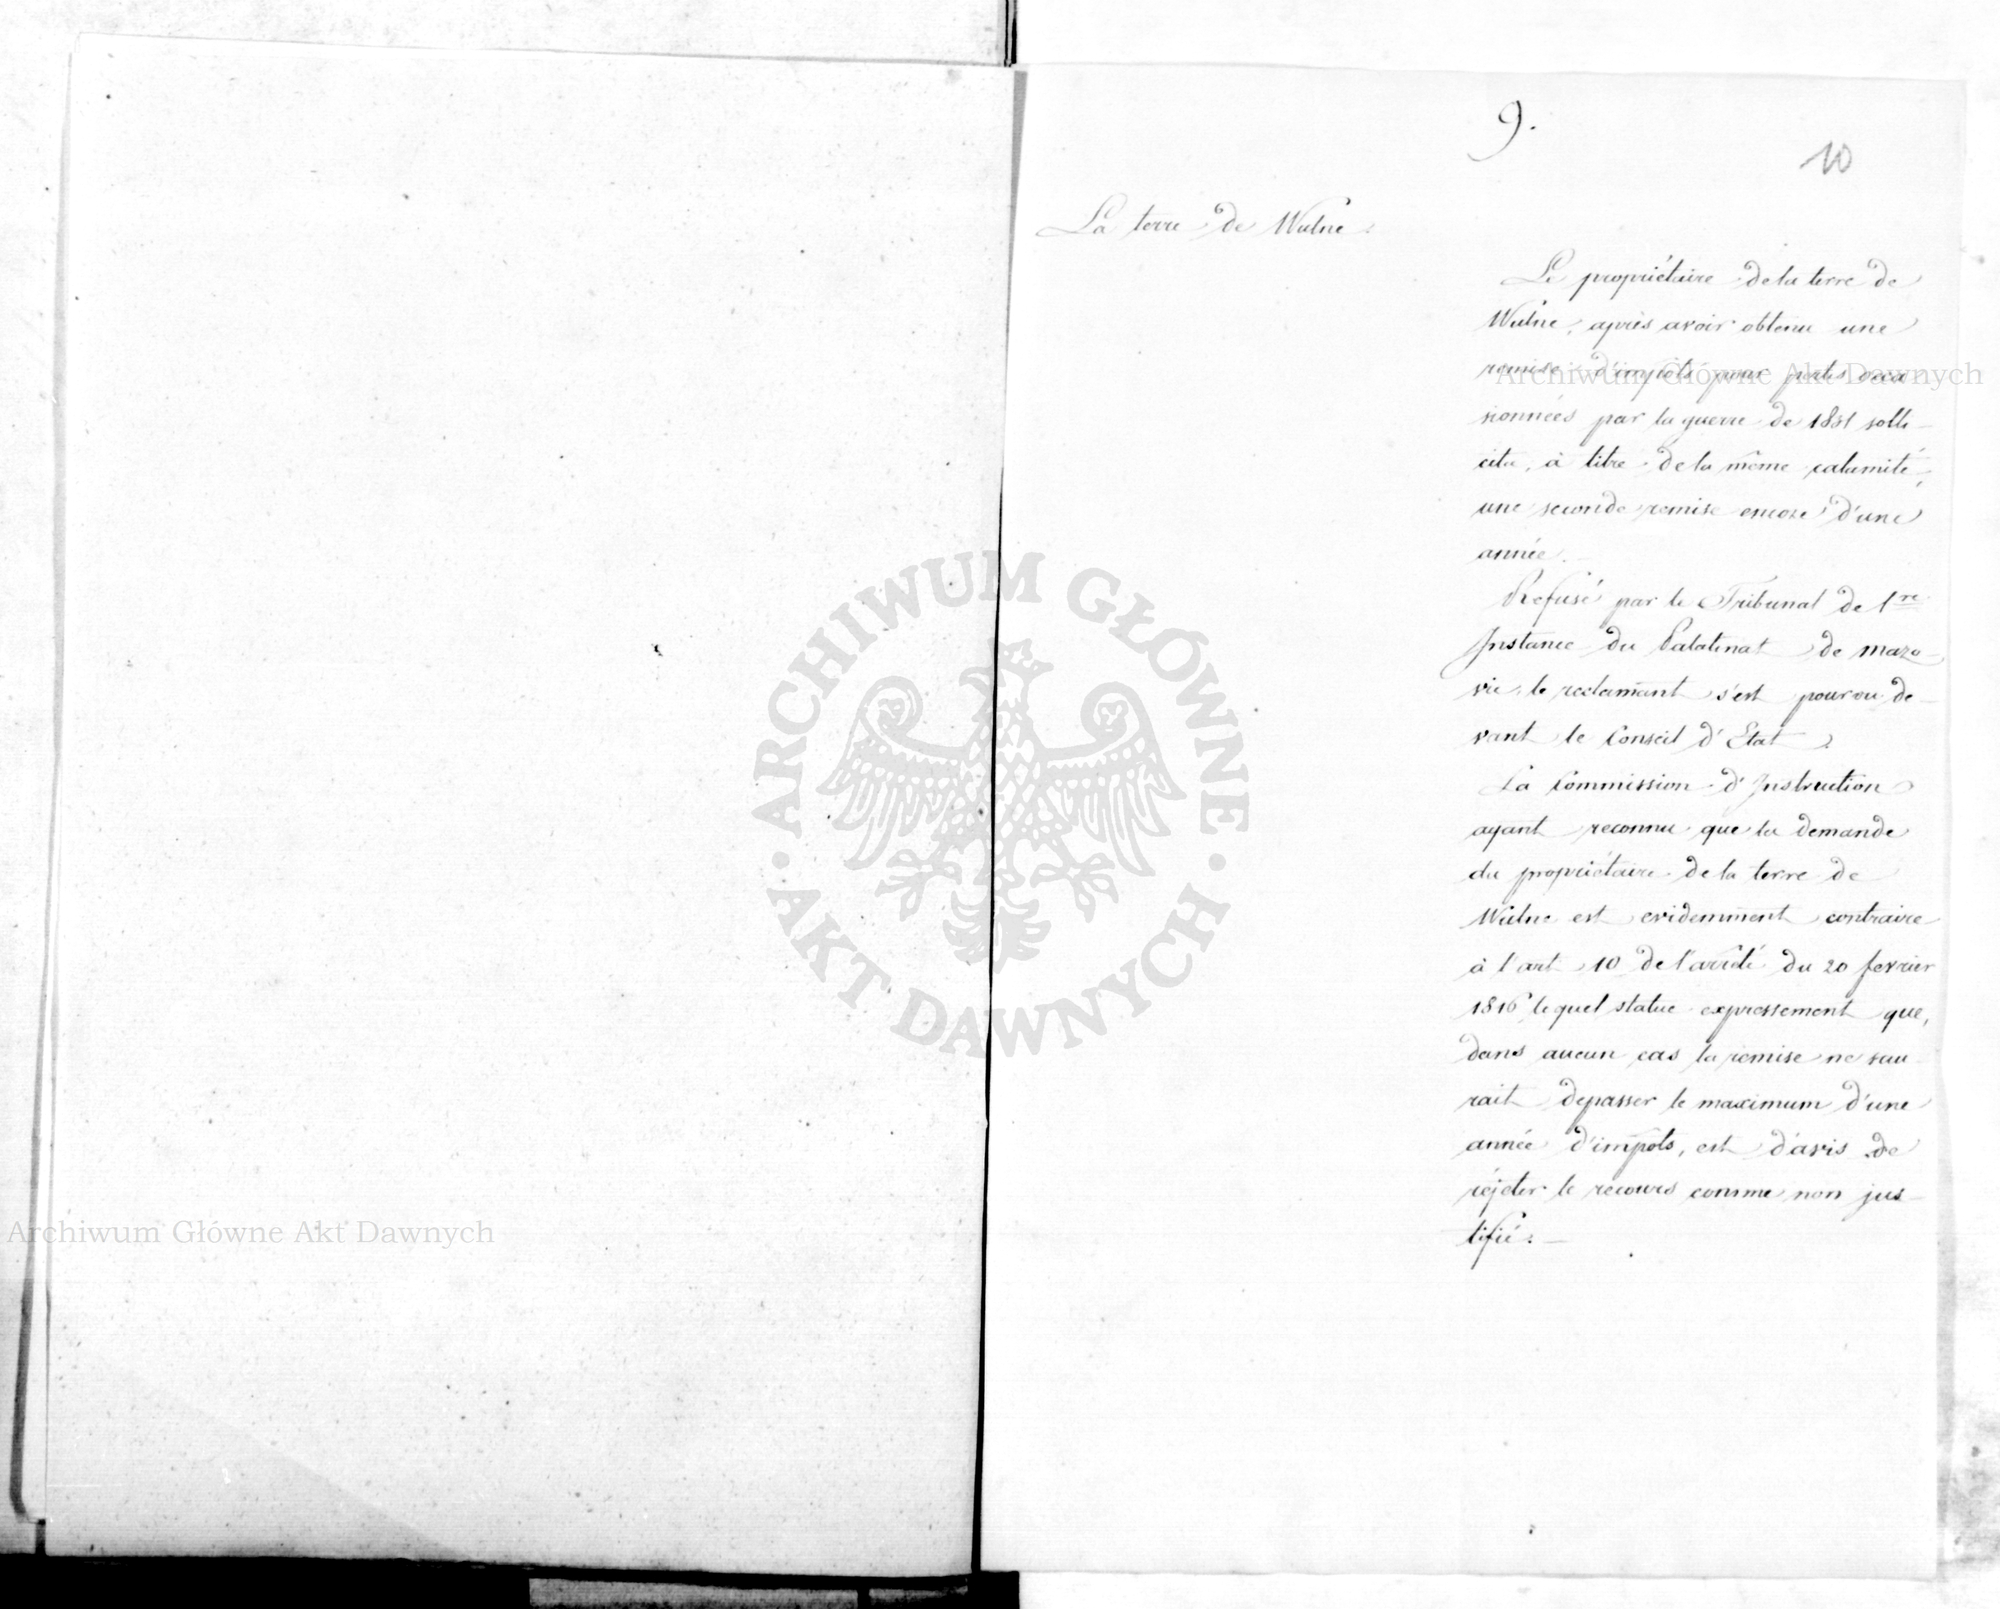 9.
10
La terre de Wulne.
Le propriétaire de la terre de
Wulne, après avoir obtenu une
remise d'impôts pour pertes occa-
sionnées par la guerre de 1831 solli-
cita, à titre de la même calamité,
une seconde remise encore d'une
année.
Refusé par le Tribunal de 1re
Instance du Palatinat de Mazo-
vie, le reclamant s'est pourvu de-
vant le Conseil d'Etat.
La Commission d'Instruction
ayant reconnu que la demande
du propriétaire de la terre de
Wulne est evidemment contraire
à l'art 10 de l'arrêté du 20 fevrier
1816 lequel statue expressement que,
dans aucun cas la remise ne sau-
rait depasser le maximum d'une
année d'impots, est d'avis de
réjeter le recours comme non jus-
tifié.
Archiwum Główne Akt Dawnych
Archiwum Główne Akt Dawnych
ARCHIWUM GŁÓWNE · AKT DAWNYCH ·